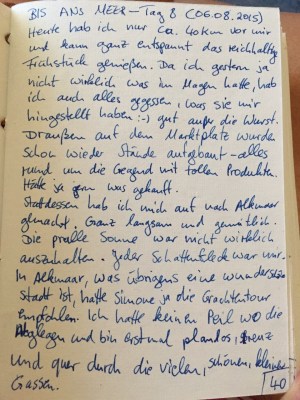 BIS ANS MEER – Tag 8 (06.08.2015)
Heute hab ich nur ca. 40km vor mir
und kann ganz entspannt das reichhaltige
Frühstück genießen. Da ich gestern ja
nicht wirklich was im Magen hatte, hab
ich auch alles gegessen, was sie mir
hingestellt haben :-) gut außer die Wurst.
Draußen auf dem Marktplatz wurden
schon wieder Stände aufgebaut – alles
rund um die Gegend mit tollen Produkten.
Hätte ja gern was gekauft.
Stattdessen hab ich mich auf nach Alkmaar
gemacht. Ganz langsam und gemütlich.
Die pralle Sonne war nicht wirklich
auszuhalten. Jeder Schattenfleck war mir.
In Alkmaar, was übrigens eine wunderschöne
Stadt ist, hatte Simone ja die Grachtentour
empfohlen. Ich hatte keinen Peil wo die
ablegen und bin erstmal planlos, kreuz
und quer durch die vielen, schönen, kleinen
Gassen.
40